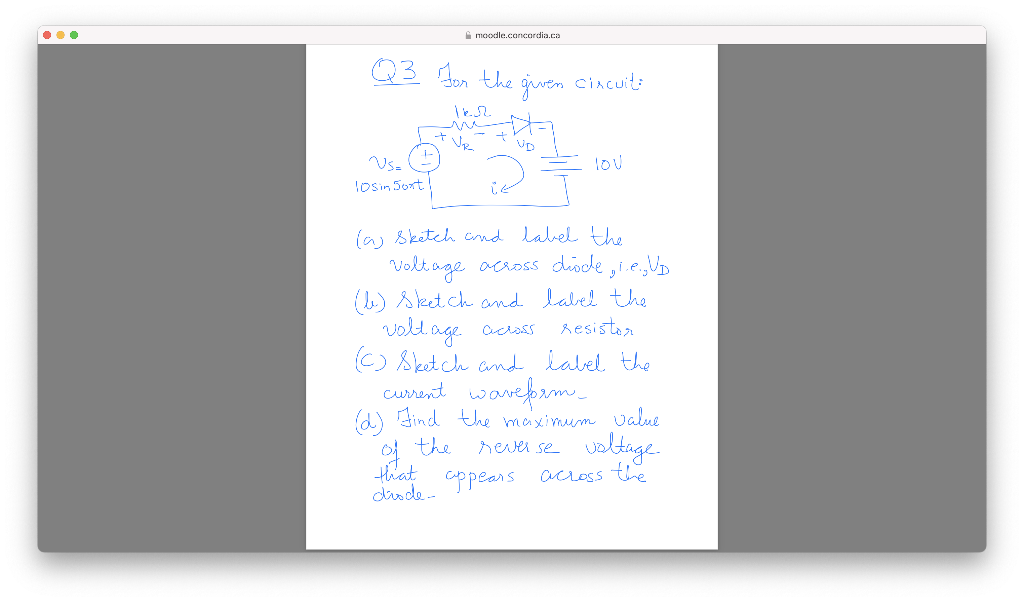 moodle.concordia.ca
Q3 For the given circuit:
1kΩ
+ VR - + VD -
Vs= + -
10sin50πt
i
10V
(a) Sketch and label the
voltage across diode, i.e., VD
(b) Sketch and label the
voltage across resistor
(c) Sketch and label the
current waveform
(d) Find the maximum value
of the reverse voltage
that appears across the
diode.